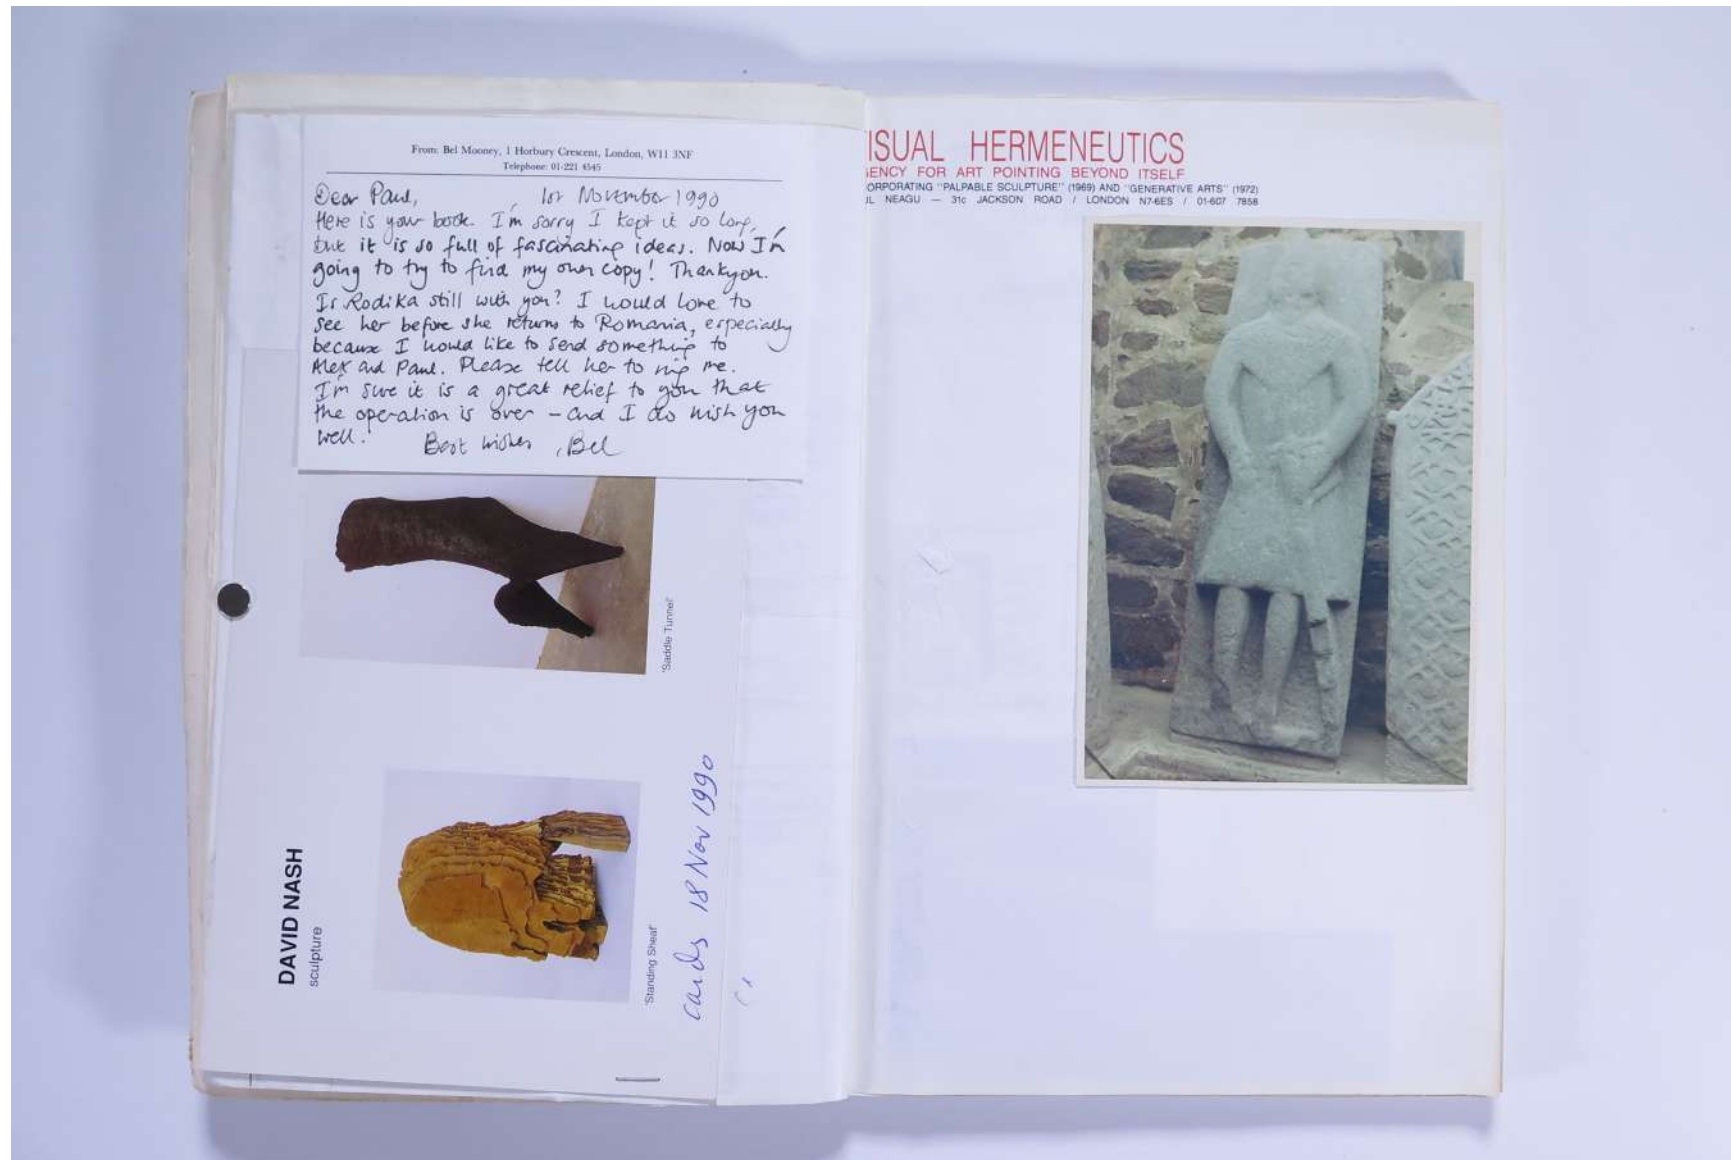 From: Bel Mooney, 1 Horbury Crescent, London, W11 3NF
Telephone: 01-221 4545
Dear Paul, 1st November 1990
Here is your book. I'm sorry I kept it so long,
but it is so full of fascinating ideas. Now I'm
going to try to find my own copy! Thankyou.
Is Rodika still with you? I would love to
see her before she returns to Romania, especially
because I would like to send something to
Alex and Paul. Please tell her to ring me.
I'm sure it is a great relief to you that
the operation is over – and I do wish you
well. Best wishes, Bel
'Saddle Tunnel'
DAVID NASH
sculpture
'Standing Sheaf'
cards 18 Nov 1990
ISUAL HERMENEUTICS
ENCY FOR ART POINTING BEYOND ITSELF
ORPORATING "PALPABLE SCULPTURE" (1969) AND "GENERATIVE ARTS" (1972)
UL NEAGU — 31c JACKSON ROAD / LONDON N7-6ES / 01-607 7858